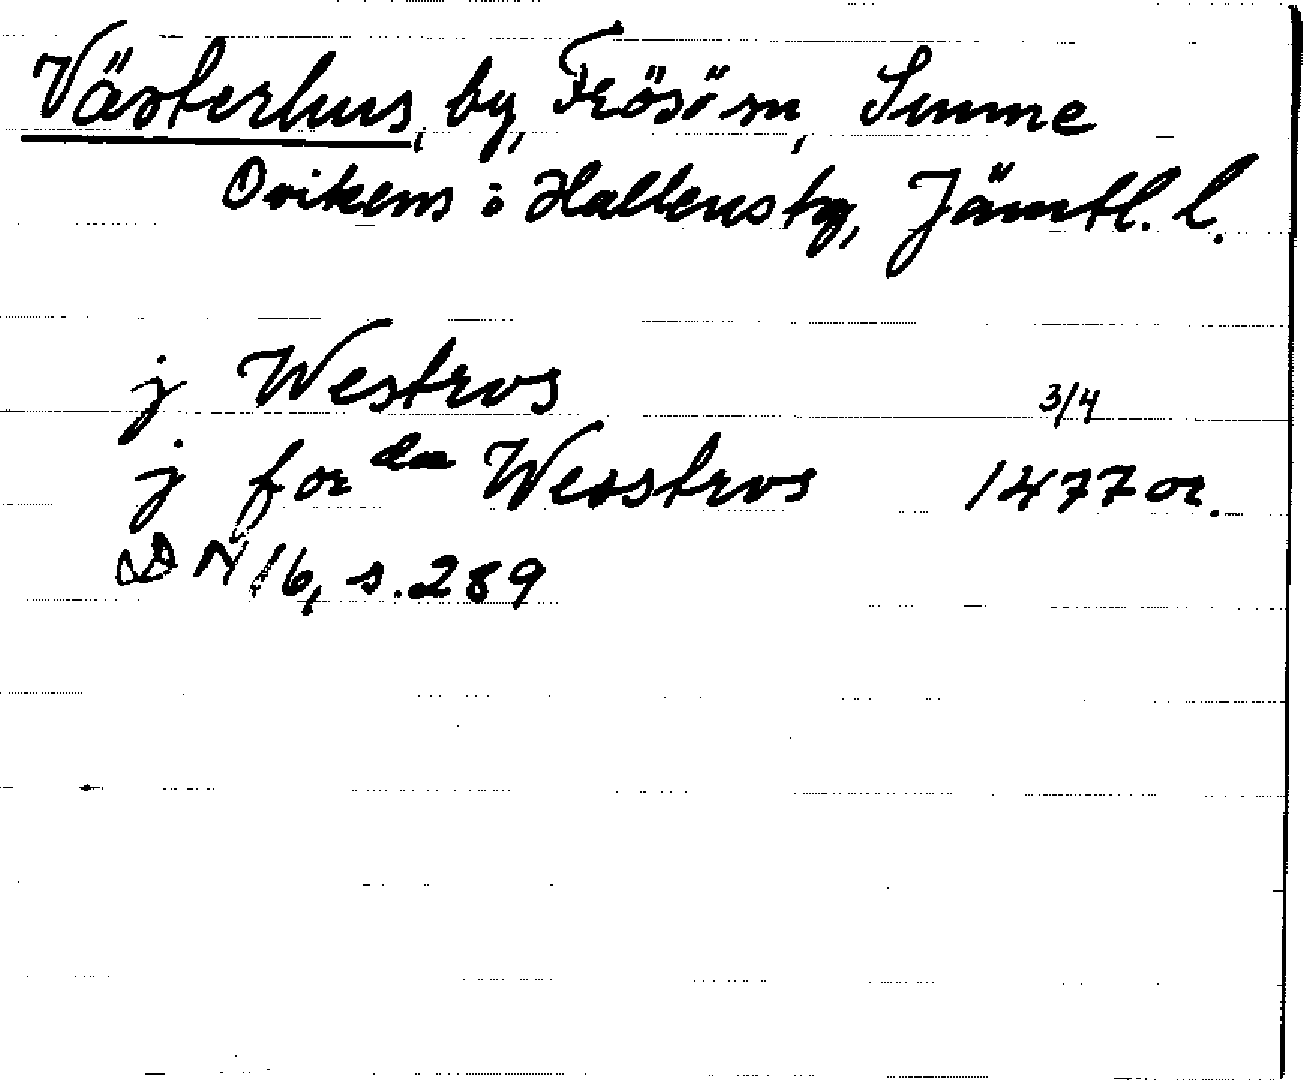 Västerhus, by, Frösö sn, Sunne
Ovikens o Hallens tg, Jämtl. l.
j Westros 3/4
j for da Wesstros 1477 or.
DN 16, s. 289